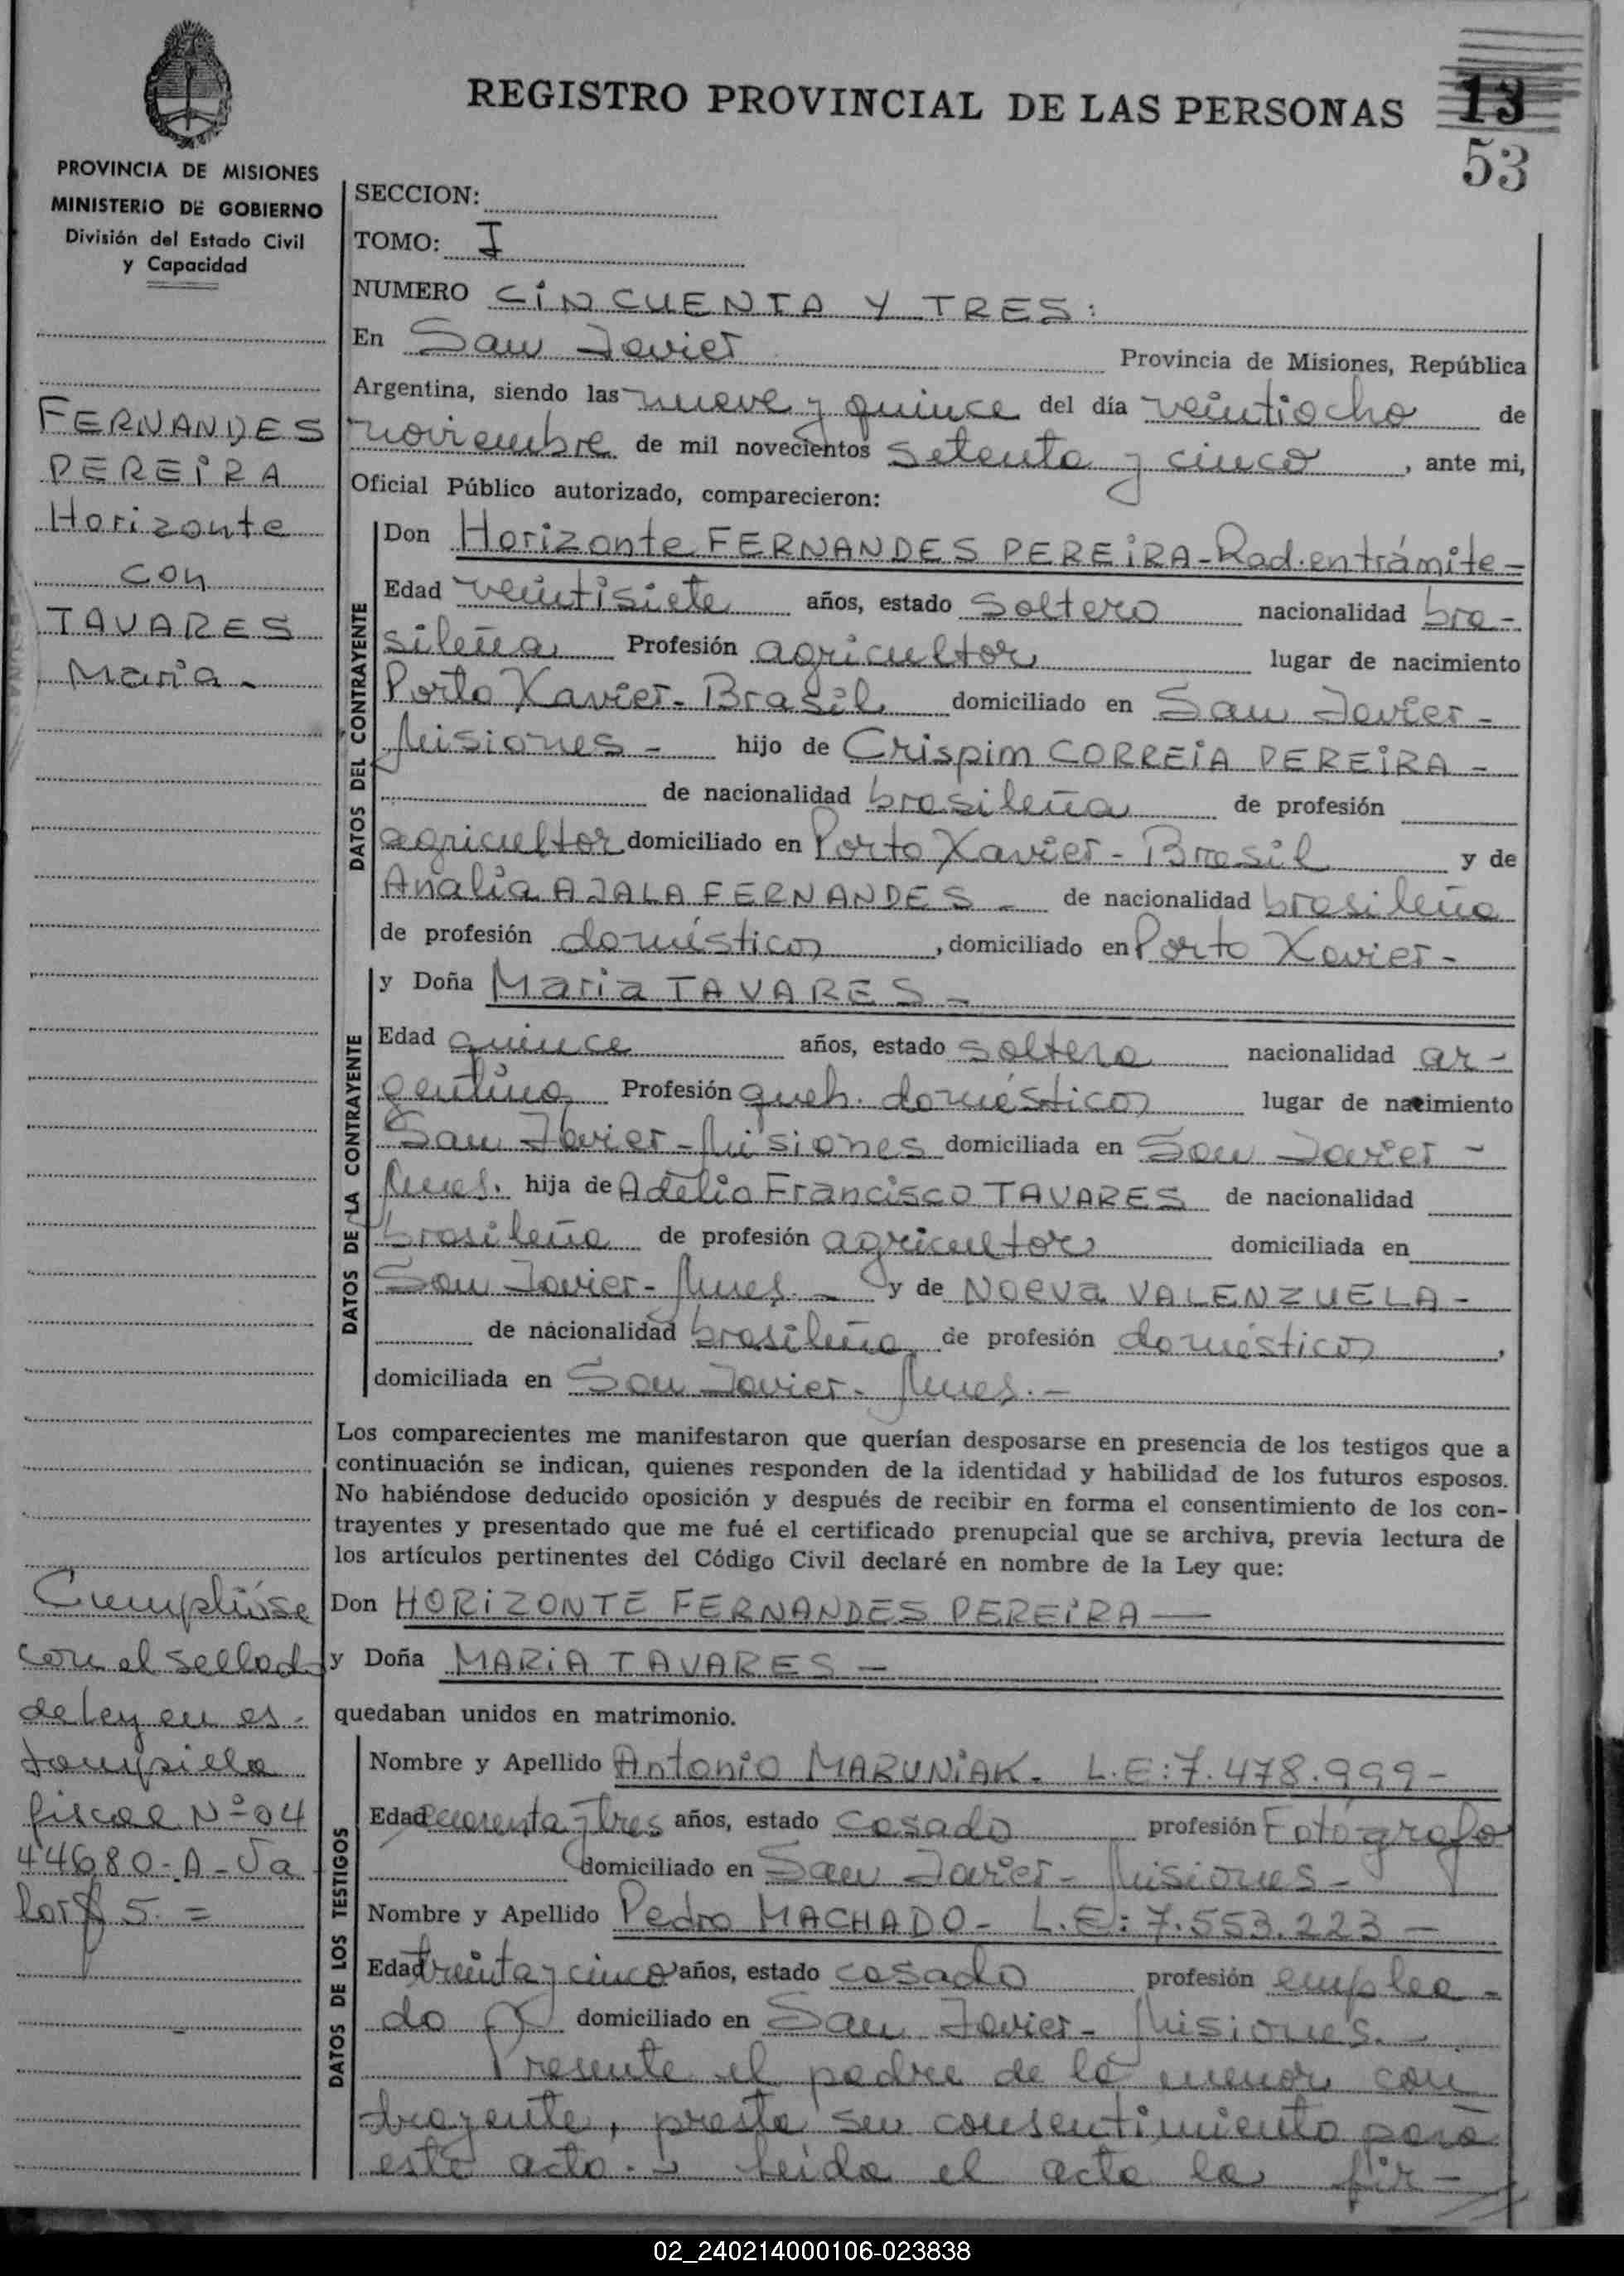 REGISTRO PROVINCIAL DE LAS PERSONAS
13
53
PROVINCIA DE MISIONES
MINISTERIO DE GOBIERNO
División del Estado Civil
y Capacidad
FERNANDES
PEREIRA
Horizonte
con
TAVARES
Maria-
Cumplióse
con el sellado
de Ley en es-
tampilla
fiscal Nº 04
44680-A-Va
lor $ 5.=
SECCION:
TOMO: I
NUMERO CINCUENTA Y TRES:
En San Javier Provincia de Misiones, República
Argentina, siendo las nueve y quince del día veintiocho de
noviembre de mil novecientos setenta y cinco, ante mi,
Oficial Público autorizado, comparecieron:
DATOS DEL CONTRAYENTE
Don Horizonte FERNANDES PEREIRA-Rad.entrámite-
Edad veintisiete años, estado soltero nacionalidad bra-
sileña Profesión agricultor lugar de nacimiento
Porto Xavier-Brasil domiciliado en San Javier-
Misiones- hijo de Crispim CORREIA PEREIRA-
de nacionalidad brasileña de profesión
agricultor domiciliado en Porto Xavier-Brasil y de
Analia AJALA FERNANDES- de nacionalidad brasileña
de profesión doméstica, domiciliado en Porto Xavier-
DATOS DE LA CONTRAYENTE
y Doña Maria TAVARES-
Edad quince años, estado soltera nacionalidad ar-
gentina Profesión queh. domésticos lugar de nacimiento
San Javier-Misiones domiciliada en San Javier-
Mnes. hija de Adelio Francisco TAVARES de nacionalidad
brasileña de profesión agricultor domiciliada en
San Javier-Mnes.- y de Noeva VALENZUELA-
de nacionalidad brasileña de profesión doméstica,
domiciliada en San Javier-Mnes.-
Los comparecientes me manifestaron que querían desposarse en presencia de los testigos que a
continuación se indican, quienes responden de la identidad y habilidad de los futuros esposos.
No habiéndose deducido oposición y después de recibir en forma el consentimiento de los con-
trayentes y presentado que me fué el certificado prenupcial que se archiva, previa lectura de
los artículos pertinentes del Código Civil declaré en nombre de la Ley que:
Don HORIZONTE FERNANDES PEREIRA—
y Doña MARIA TAVARES-
quedaban unidos en matrimonio.
DATOS DE LOS TESTIGOS
Nombre y Apellido Antonio MARUNIAK- L.E:7.478.999-
Edad cuarenta y tres años, estado casado profesión Fotógrafo
domiciliado en San Javier-Misiones-
Nombre y Apellido Pedro MACHADO- L.E:7.553.223-
Edad treinta y cinco años, estado casado profesión emplea-
do domiciliado en San Javier-Misiones.-
Presente el padre de la menor con
trayente, presta su consentimiento para
este acto.- Leída el acta la fir-
02_240214000106-023838